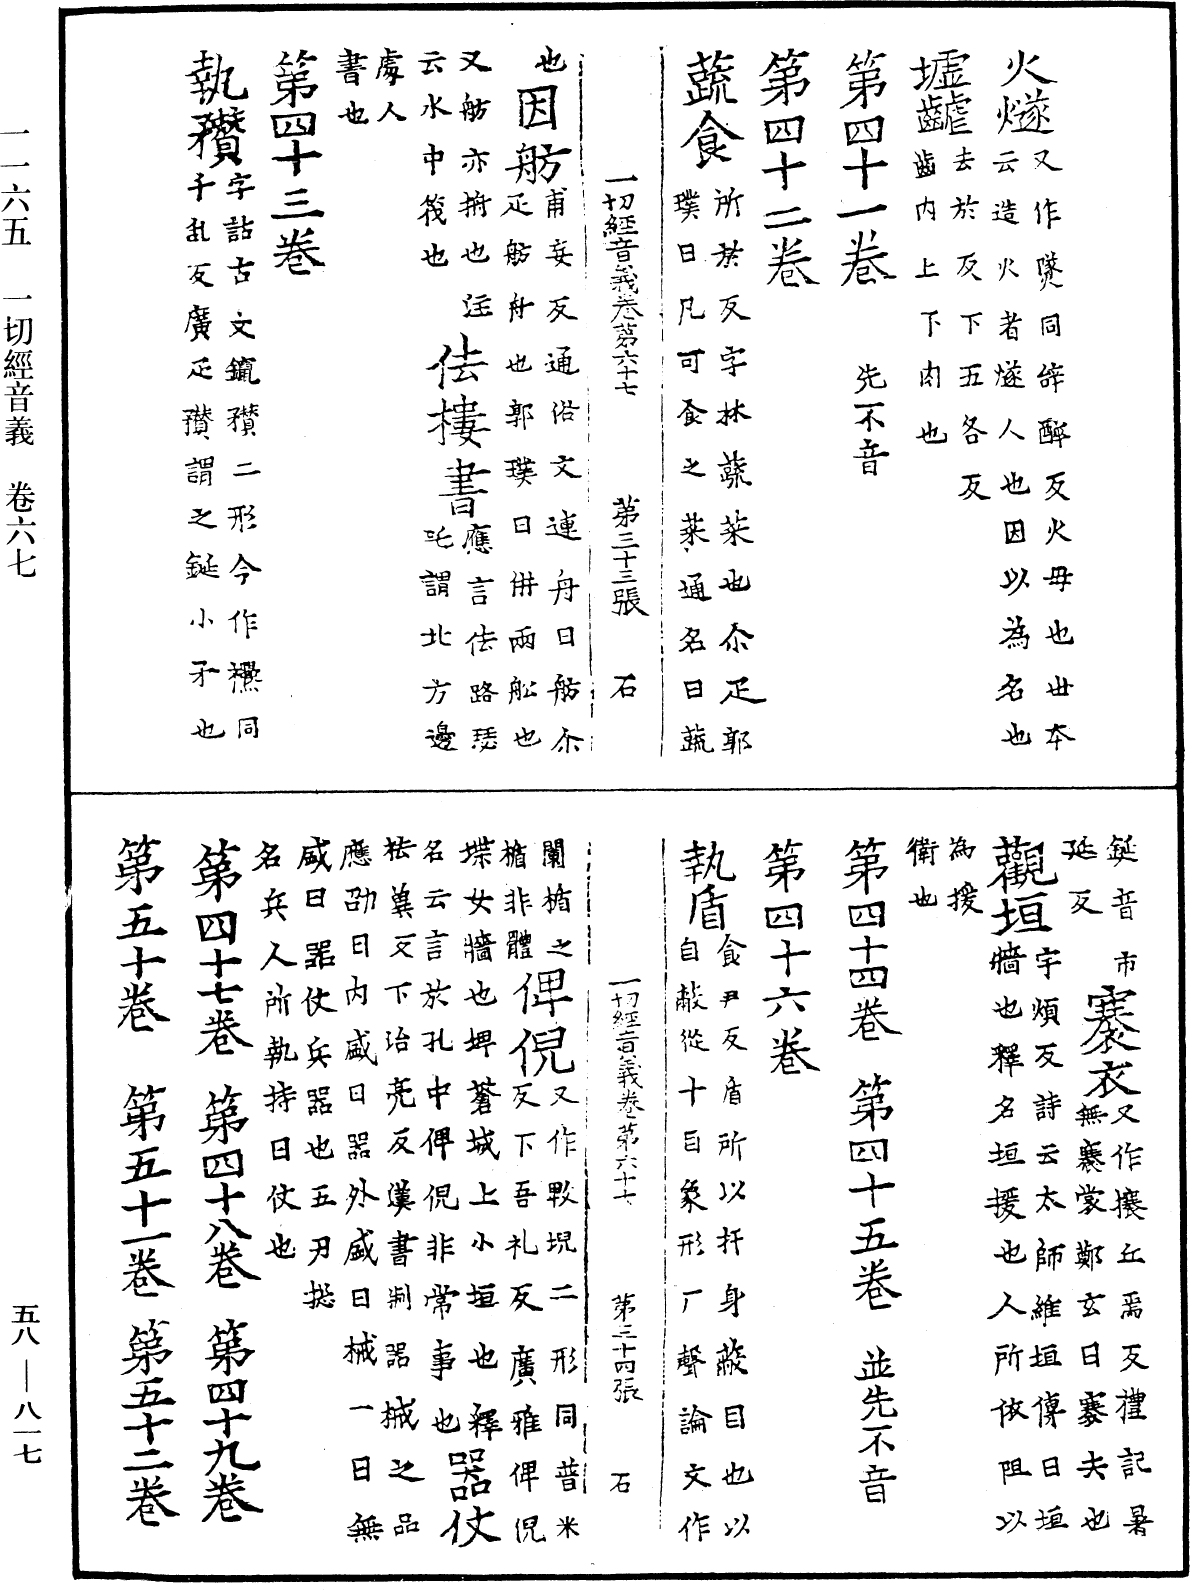 火燧又作㸂同辝醉反火母也丗夲
云造火者燧人也因以為名也
墟齶去於反下五各反
齒内上下肉也
第四十一卷　先不音
第四十二卷
蔬食所於反字林蔬菜也尒疋郭
璞曰凡可食之菜通名曰蔬
一切經音義卷第六十七　第三十三張　石
也因舫甫妄反通俗文連舟曰舫尒
疋舫舟也郭璞曰併兩舩也
又舫亦泭也注
云水中筏也佉樓書應言佉路瑟
吒謂北方邊
處人
書也
第四十三卷
執穳字詁古文鑹穳二形今作䆘同
千乱反廣疋穳謂之鋋小矛也
鋋音市
延反褰衣又作攐丘焉反禮記暑
無褰裳鄭玄曰褰夫也
觀垣宇煩反詩云太師維垣傳曰垣
牆也釋名垣援也人所依阻以
為援
衛也
第四十四卷　第四十五卷　並先不音
第四十六卷
執盾食尹反盾所以扞身蔽目也以
自蔽從十目象形厂聲論文作
一切經音義卷第六十七　第三十四張　石
闌楯之
楯非體俾倪又作䫌堄二形同普米
反下吾礼反廣雅俾倪
堞女牆也埤蒼城上小垣也釋
名云言於孔中俾倪非常事也器仗
祛冀反下治亮反漢書制器械之品
應劭曰内盛曰器外盛曰械一曰無
盛曰器仗兵器也五刃捴
名兵人所執持曰仗也
第四十七卷　第四十八卷　第四十九卷
第五十卷　第五十一卷　第五十二卷
一一六五　一切經音義　卷六七
五八—八一七